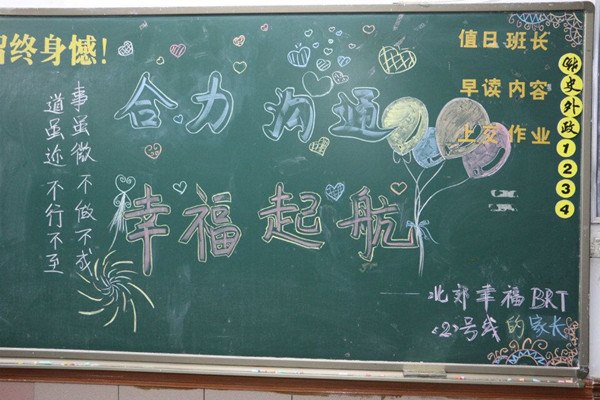 终身憾!
事虽微 不做不成
道虽迩 不行不至
合力 沟通
幸福起航
值日班长
早读内容
上交作业
史外政1234
北郊幸福BRT
<2>号线的家长